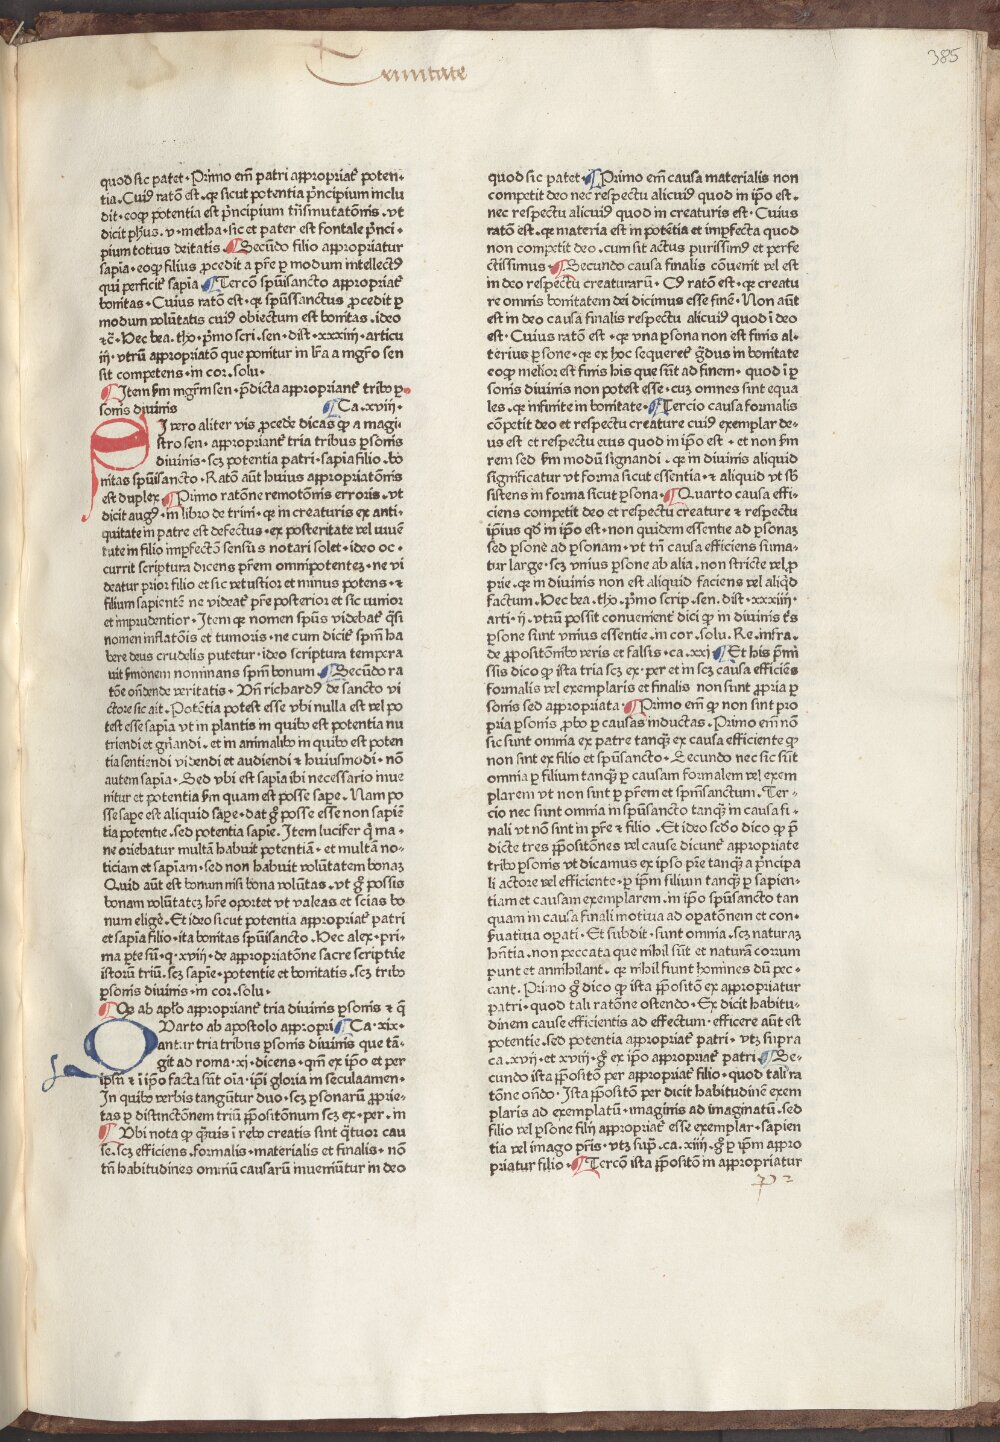 Trinitate
385
quod sic patet · Primo em̄ patri appropriat᷑ poten-
tia · Cui᷒ ratō est · qꝛ sicut potentia p̄ncipium inclu
dit · eoqꝫ potentia est p̄ncipium trāsmutatōnis · vt
dicit ph̄us · v · metha · sic et pater est fontale p̄nci-
pium totius deitatis ¶ Secūdo filio appropriatur
sapīa · eoqꝫ filius ꝓcedit a pr̄e ꝑ modum intellect᷒
qui perficit᷑ sapīa ¶ Tercō spūisancto appropriat᷑
bonitas · Cuius ratō est · qꝛ spūssanctus ꝓcedit ꝑ
modum volūtatis cui᷒ obiectum est bonitas · ideo
⁊c̄ · Hec bea · tho · pͥmo scri · sen · dist · xxxiiij · articu
iij · vtrū appropriatō que ponitur in lr̄a a mgr̄o sen
sit competens · in cor · solu ·
¶ Item ẜm mgr̄m sen · p̄dicta appropriant᷑ tribꝰ ꝑ-
sonis diuinis ¶ Ca · xviij ·
SI vero aliter vis ꝓcedere dicas qꝙ a magi
stro sen · appropriant᷑ tria tribus ꝑsonis
diuinis · scꝫ potentia patri · sapīa filio · bo
nitas spūisancto · Ratō aūt huius appropriatōnis
est duplex ¶ Primo ratōne remotōnis erroris · vt
dicit aug᷒ · in libro de trini · qꝛ in creaturis ex anti-
quitate in patre est defectus · ex posteritate vel iuuē
tute in filio imꝑfectō sensus notari solet · ideo oc-
currit scriptura dicens pr̄em omnipotentem · ne vi
deatur prior filio et sic vetustior et minus potens · ⁊
filium sapientē ne videat᷑ pr̄e posterior et sic iunior
et imprudentior · Item qꝛ nomen spūs videbat᷑ q̄si
nomen inflatōis et tumoris · ne cum dicit᷑ spm̄ ha
bere deus crudelis putetur · ideo scriptura tempera
uit ẜmonem nominans spm̄ bonum ¶ Secūdo ra
tōe on̄dende veritatis · Vn̄ richard᷒ de sancto vi
ctore sic ait · Potētia potest esse vbi nulla est vel po
test esse sapīa vt in plantis in quibꝰ est potentia nu
triendi et gn̄andi · et in animalibꝰ in quibꝰ est poten
tia sentiendi videndi et audiendi ⁊ huiusmodi · nō
autem sapīa · Sed vbi est sapīa ibi necessario inue
nitur et potentia ẜm quam est posse saꝑe · Nam po
sse saꝑe est aliquid saꝑe · dat gͦ posse esse non sapiē
tia potentie · sed potentia sapīe · Item lucifer q̄ ma-
ne oriebatur multā habuit potentiā · et multā no-
ticiam et sapīam · sed non habuit volūtatem bonaꝫ
Quid aūt est bonum nisi bona volūtas · vt gͦ possis
bonam volūtateꝫ hr̄e oportet vt valeas et scias bo
num eliger̄e · Et ideo sicut potentia appropriat᷑ patri
et sapīa filio · ita bonitas spūisancto · Hec alex · pri-
ma ꝑte sū · q · xviij · de appropriatōne sacre scripture
istorū triū · scꝫ sapīe · potentie et bonitatis · scꝫ tribꝰ
ꝑsonis diuinis · in cor · solu ·
¶ Qꝙ ab apl̄o appropriant᷑ tria diuinis ꝑsonis ⁊ q̄
Quarto ab apostolo appropri ¶ Ca · xix ·
antur tria tribus ꝑsonis diuinis que tā-
git ad roma · xi · dicens · qm̄ ex ip̄o et per
ip̄sū ⁊ ī ip̄o facta sūt oīa · ip̄i gloria in secula amen ·
In quibꝰ verbis tangūtur duo · scꝫ ꝑsonarū ꝓprie-
tas ꝑ distinctōnem triū ꝓpositōnum scꝫ ex · per · in
¶ Vbi nota qꝙ q̄uis ī rebꝰ creatis sint q̄tuor cau
se · scꝫ efficiens · formalis · materialis et finalis · nō
tn̄ habitudines omniū causarū inueniūtur in deo
quod sic patet · ¶ Primo em̄ causa materialis non
competit deo nec respectu alicui᷒ quod in ip̄o est ·
nec respectu alicui᷒ quod in creaturis est · Cuius
ratō est · qꝛ materia est in potētia et imꝑfecta quod
non competit deo · cum sit actus purissim᷒ et perfe
ctissimus · ¶ Secundo causa finalis cōuenit vel est
in deo respectu creaturarū · C᷒ ratō est · qꝛ creatu
re omnis bonitatem dei dicimus esse finē · Non aūt
est in deo causa finalis respectu alicui᷒ quod ī deo
est · Cuius ratō est · qꝛ vna ꝑsona non est finis al-
terius ꝑsone · qꝛ ex hoc sequeret᷑ gͣdus in bonitate
eoqꝫ melior est finis his que sūt ad finem · quod ī ꝑ
sonis diuinis non potest esse · cuꝫ omnes sint equa
les · qꝛ infinite in bonitate · ¶ Tercio causa formalis
cōpetit deo et respectu creature cui᷒ exemplar de-
us est et respectu eius quod in ip̄o est · et non ẜm
rem sed ẜm modū signandi · qꝛ in diuinis aliquid
significatur vt forma sicut essentia · ⁊ aliquid vt sb̄
sistens in forma sicut ꝑsona · ¶ Quarto causa effi-
ciens competit deo et respectu creature ⁊ respectu
ip̄ius qd̄ in ip̄o est · non quidem essentie ad ꝑsonaꝫ
sed ꝑsone ad ꝑsonam · vt tn̄ causa efficiens suma-
tur large · scꝫ vnius ꝑsone ab alia · non stricte vel ꝓ
prie · qꝛ in diuinis non est aliquid faciens vel aliq᷒d
factum · Hec bea · tho · pͥmo scrip · sen · dist · xxxiiij ·
arti · ij · vtrū possit conuenient᷑ dici qꝙ in diuinis t̄s
ꝑsone sunt vnius essentie · in cor · solu · Re · infra ·
de ꝓpositōnibꝰ veris et falsis · ca · xxj ¶ Et his p̄mi
ssis dico qꝙ ista tria scꝫ ex · per · et in scꝫ causa efficiēs
formalis vel exemplaris et finalis non sunt ꝓpria ꝑ
sonis sed appropriata · ¶ Primo em̄ qꝙ non sint pro
pria ꝑsonis · ꝓbo ꝑ causas inductas · Primo em̄ nō
sic sunt omnia ex patre tanqꝫ ex causa efficiente qꝙ
non sint ex filio et spūsancto · Secundo nec sic sūt
omnia ꝑ filium tanqꝫ ꝑ causam formalem vel exem
plarem vt non sint ꝑ pr̄em et spm̄sanctum · Ter-
cio nec sunt omnia in spūsancto tanqꝫ in causa fi-
nali vt nō sint in pr̄e ⁊ filio · Et ideo scd̄o dico qꝙ p̄
dicte tres ꝓpositōnes vel cause dicunt᷑ appropriate
tribꝰ ꝑsonis vt dicamus ex ipso pr̄e tanqꝫ a p̄ncipa
li actore vel efficiente · ꝑ ip̄m filium tanqꝫ ꝑ sapien-
tiam et causam exemplarem · in ip̄o spūsancto tan
quam in causa finali motiua ad oꝑatōnem et con-
ẜuatiua oꝑati · Et subdit · sunt omnia · scꝫ naturaꝫ
hn̄tia · non peccata que nihil sūt et naturā corrum
punt et annihilant · qꝛ nihil fiunt homines dū pec-
cant · Primo gͦ dico qꝙ ista ꝓpositō ex appropriatur
patri · quod tali ratōne ostendo · Ex dicit habitu-
dinem cause efficientis ad effectum · efficere aūt est
potentie · sed potentia appropriat᷑ patri · vtꝫ supra
ca · xvij · et xviij · gͦ ex ip̄o appropriat᷑ patri ¶ Se-
cundo ista ꝓpositō per appropriat᷑ filio · quod tali ra
tōne on̄do · Ista ꝓpositō per dicit habitudinē exem
plaris ad exemplatū · imaginis ad imaginatū · sed
filio vel ꝑsone filij appropriat᷑ esse exemplar · sapien
tia vel imago pr̄is · vtꝫ supͣ · ca · xiiij · gͦ ꝑ ip̄m appro
priatur filio · ¶ Tercō ista ꝓpositō in appropriatur
p 2